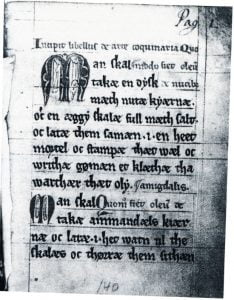 Pag. 1.
Incipit libellus de arte coquinaria Quo
Man skal modo fiet oleū
takæ en dysk de nucibȝ
mæth nutæ kyærnæ.
oc en æggy skalæ full mæth salt
oc latæ them samæn .i. en heet
mortel oc stampæ thæt wæl oc
writhæ gømæn et klæthæ tha
warthær thæt oly. amigdalis.
Man skal Quom̄ fiet oleū de
takæ ammandæls kiær
næ oc latæ .i. het watn til the
skalæs oc thørræ them sithæn
140